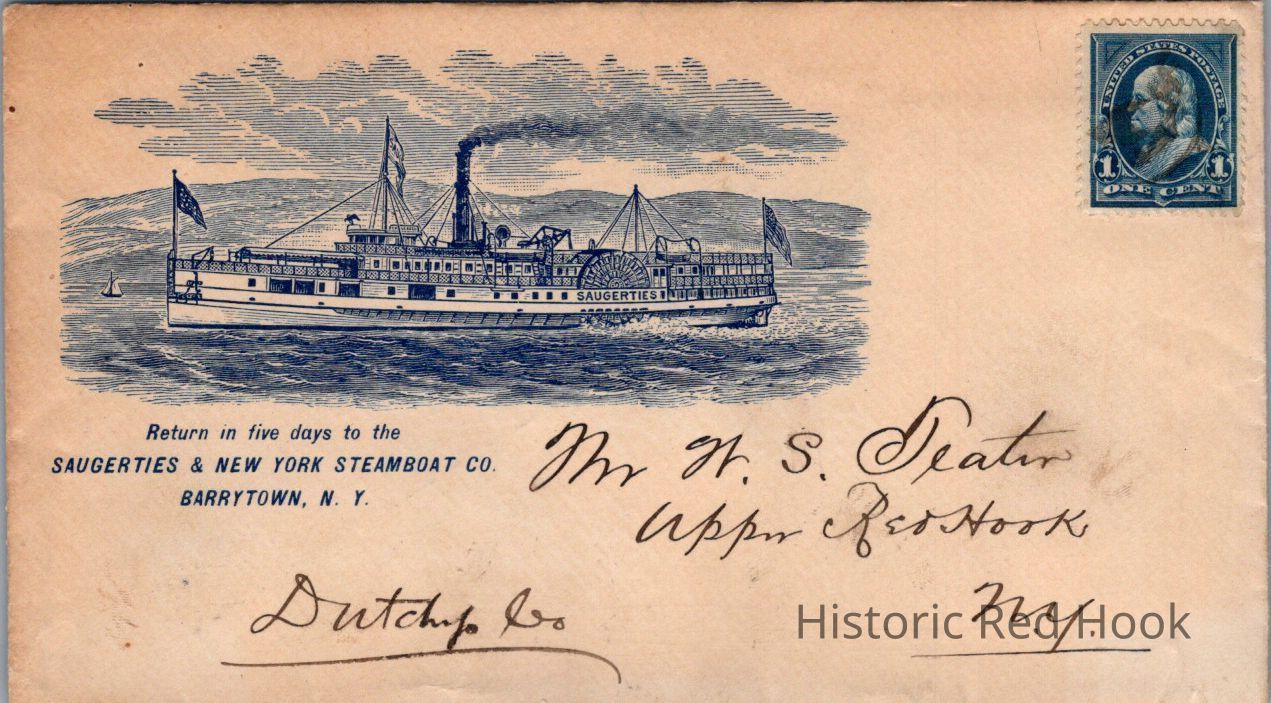 UNITED STATES POSTAGE
1 1
ONE CENT
SAUGERTIES
Return in five days to the
SAUGERTIES & NEW YORK STEAMBOAT CO.
BARRYTOWN, N. Y.
Mr W. S. Teator
Upper Red Hook
Dutchss Co
N.Y.
Historic Red Hook